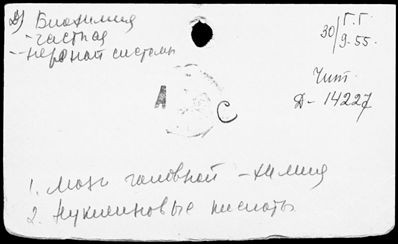 д) Биохимия
- частная
- нервной системы
Г.Г.
30/9-55.
Чит.
Д-14227
А
С
1. Мозг головной - химия
2. Нуклеиновые кислоты